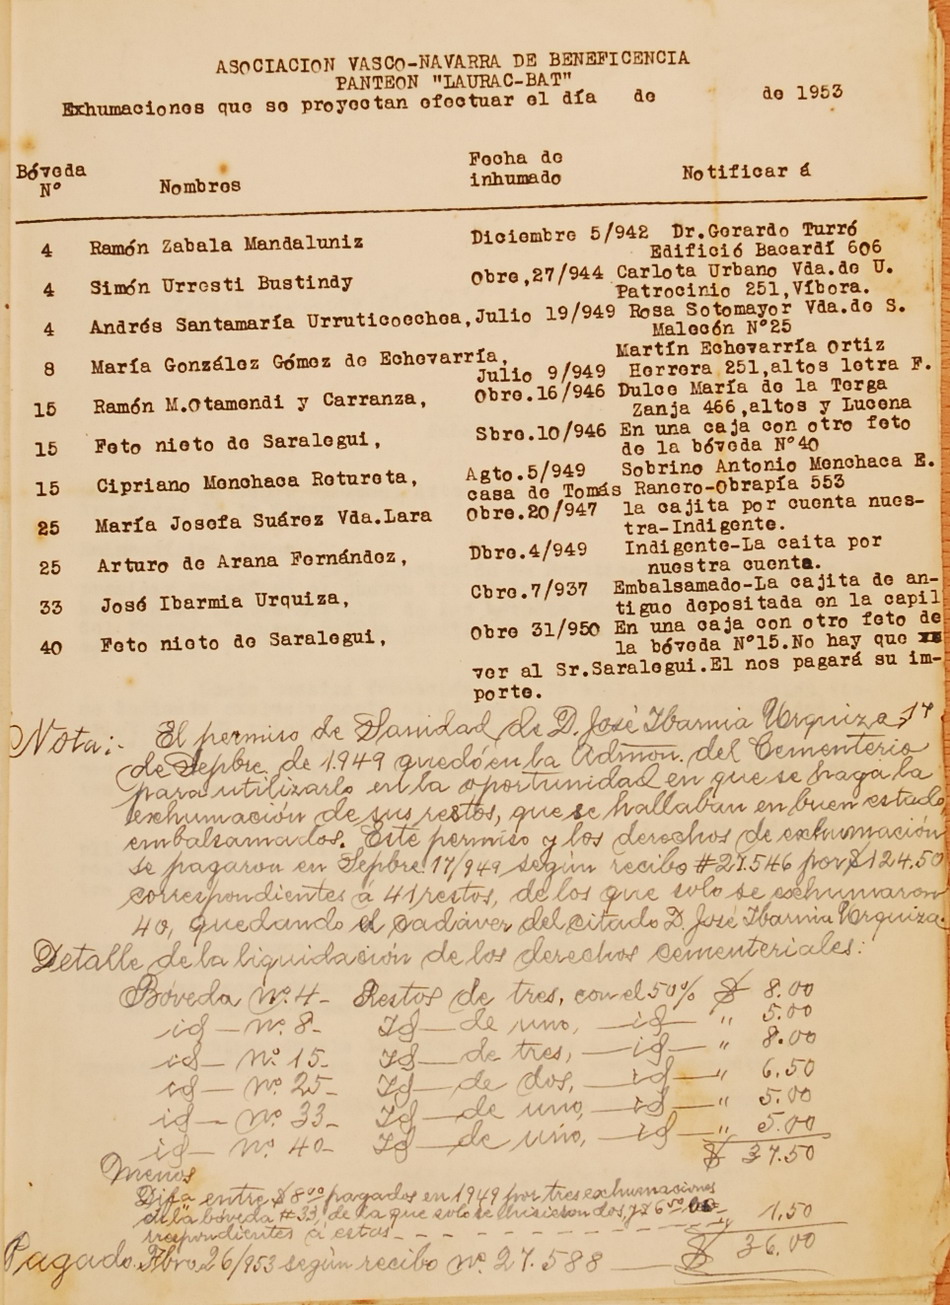 ASOCIACION VASCO-NAVARRA DE BENEFICENCIA
PANTEON "LAURAC-BAT"
Exhumaciones que se proyectan efectuar el día de de 1953
Bóveda Nº Nombres Fecha de inhumado Notificar á
4 Ramón Zabala Mandaluniz Diciembre 5/942 Dr.Gerardo Turró
Edifició Bacardí 606
4 Simón Urresti Bustindy Obre,27/944 Carlota Urbano Vda.de U.
Patrocinio 251,Víbora.
4 Andrés Santamaría Urruticoechea,Julio 19/949 Rosa Sotomayor Vda.de S.
Malecón Nº25
8 María González Gómez de Echevarría, Martín Echevarría Ortiz
Julio 9/949 Herrera 251,altos letra F.
15 Ramón M.Otamendi y Carranza, Obre.16/946 Dulce María de la Terga
Zanja 466,altos y Lucena
15 Feto nieto de Saralegui, Sbre.10/946 En una caja con otro feto
de la bóveda Nº40
15 Cipriano Menchaca Retureta, Agto.5/949 Sobrino Antonio Menchaca E.
casa de Tomás Ranero-Obrapía 553
25 María Josefa Suárez Vda.Lara Obre.20/947 la cajita por cuenta nues-
tra-Indigente.
25 Arturo de Arana Fernández, Dbre.4/949 Indigente-La caita por
nuestra cuenta.
33 José Ibarmia Urquiza, Cbre.7/937 Embalsamado-La cajita de an-
tiguo depositada en la capil
40 Feto nieto de Saralegui, Obre 31/950 En una caja con otro feto de
la bóveda Nº15.No hay que
ver al Sr.Saralegui.El nos pagará su im-
porte.
Nota:- El permiso de Sanidad de D. José Ibarmia Urquiza, 17
de Sepbre. de 1.949 quedó en la Admon. del Cementerio
para utilizarlo en la oportunidad en que se haga la
exhumación de sus restos, que se hallaban en buen estado,
embalsamados. Este permiso y los derechos de exhumación
se pagaron en Sepbre. 17/949, según recibo #27.546 por $124.50
correspondientes á 41 restos, de los que solo se exhumaron
40, quedando el cadáver del citado D. José Ibarmia Urquiza.
Detalle de la liquidación de los derechos cementeriales:
Bóveda nº. 4- Restos de tres, con el 50% $ 8.00
id — nº. 8- Id — de uno, — id — " 5.00
id — nº. 15- Id — de tres, — id — " 8.00
id — nº. 25- Id — de dos, — id — " 6.50
id — nº. 33- Id — de uno, — id — " 5.00
id — nº. 40- Id — de uno, — id — " 5.00
$ 37.50
Menos
Difa entre $8.00 pagados en 1949 por tres exhumaciones
de la bóveda #33, de la que solo se hicieron dos, y $6.50
rrespondientes a estas - - - - - 1.50
$ 36.00
Pagado. Fbro. 26/953 según recibo nº. 27.588